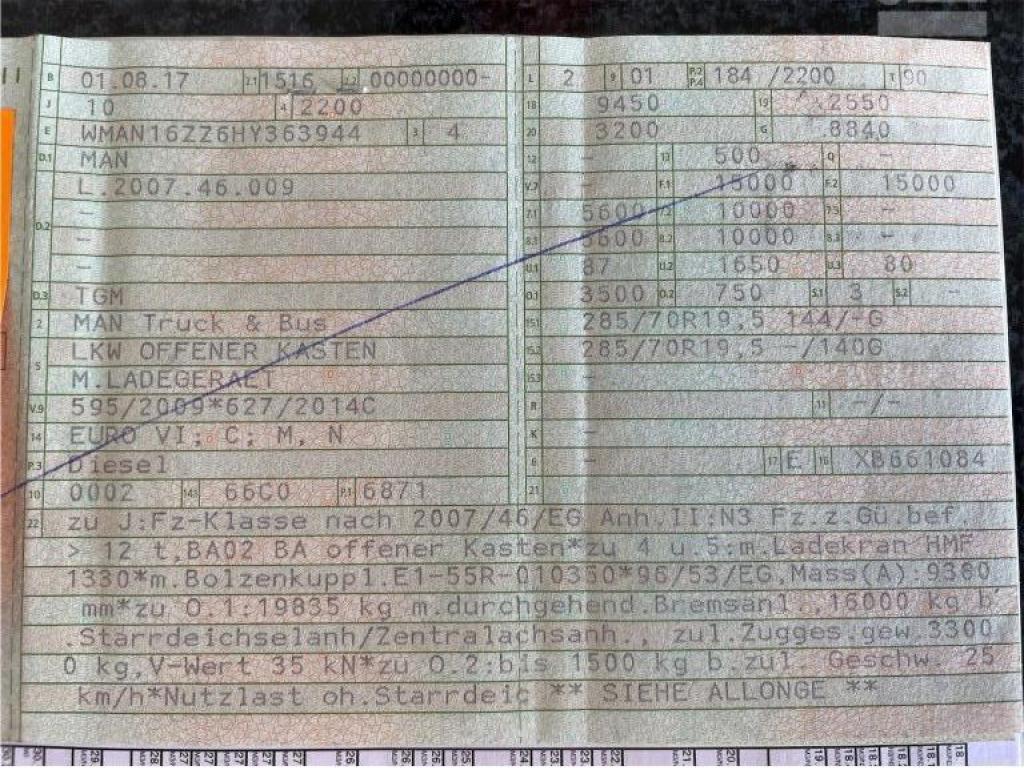 B 01.08.17 2.1 1516 2.2 00000000-
J 10 4 2200
E WMAN16ZZ6HY363944 3 4
D.1 MAN
L.2007.46.009
D.2 -
-
-
D.3 TGM
2 MAN Truck & Bus
5 LKW OFFENER KASTEN
M.LADEGERAET
V.9 595/2009*627/2014C
14 EURO VI; C; M, N
P.3 Diesel
10 0002 14.1 66C0 P.1 6871
L 2 9 01 P.2 P.4 184 /2200 T 90
18 9450 19 2550
20 3200 G 8840
12 - 13 500 Q -
V.7 - F.1 15000 F.2 15000
7.1 5600 7.2 10000 7.3 -
8.1 5600 8.2 10000 8.3 -
U.1 87 U.2 1650 U.3 80
O.1 3500 O.2 750 S.1 3 S.2 -
15.1 285/70R19,5 144/-G
15.2 285/70R19,5 -/140G
15.3 -
R - 11 -/-
K -
6 - 17 E 16 XB661084
21
22 zu J:Fz-Klasse nach 2007/46/EG Anh.II:N3 Fz.z.Gü.bef.
> 12 t,BA02 BA offener Kasten*zu 4 u.5:m.Ladekran HMF
1330*m.Bolzenkuppl.E1-55R-010350*96/53/EG,Mass(A):9360
mm*zu O.1:19835 kg m.durchgehend.Bremsanl.,16000 kg b
.Starrdeichselanh/Zentralachsanh., zul.Zugges.gew.3300
0 kg,V-Wert 35 kN*zu O.2:bis 1500 kg b.zul. Geschw. 25
km/h*Nutzlast oh.Starrdeic ** SIEHE ALLONGE **